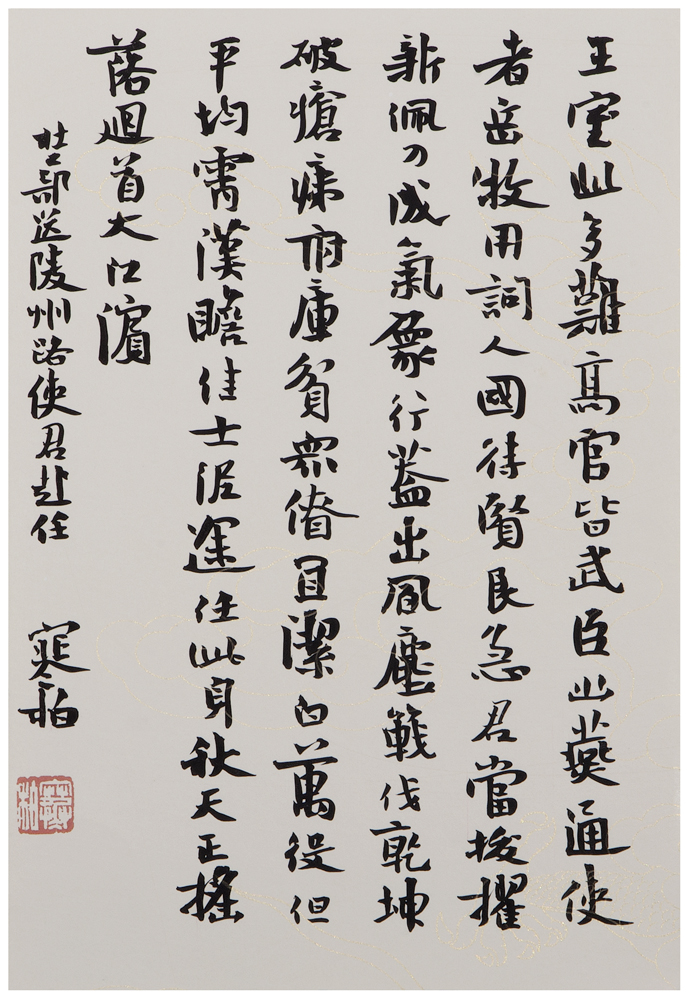 王室比多難高官皆武臣幽燕通使
者岳牧用詞人國待賢良急君當拔擢
新佩刀成氣象行蓋出風塵戰伐乾坤
破瘡痍府庫貧眾僚宜潔白萬役但
平均霄漢瞻佳士泥途任此身秋天正搖
落迴首大江濱
杜工部送陵州路使君赴任